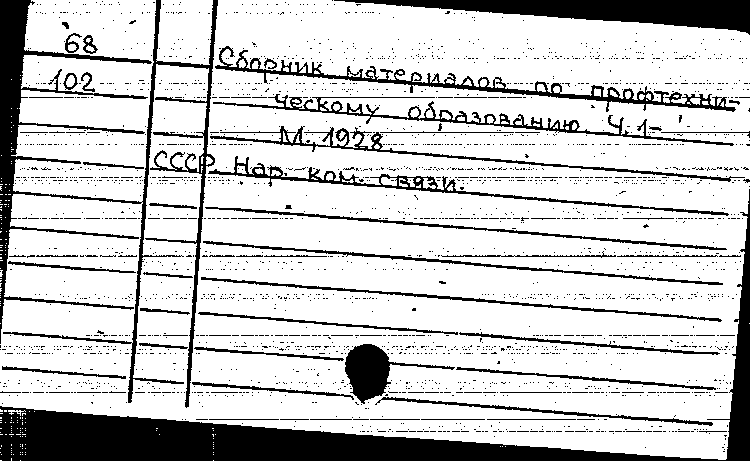 68
Сборник материалов по профтехни-
102
ческому образованию. Ч. 1-
М., 1928.
СССР. Нар. ком. связи.